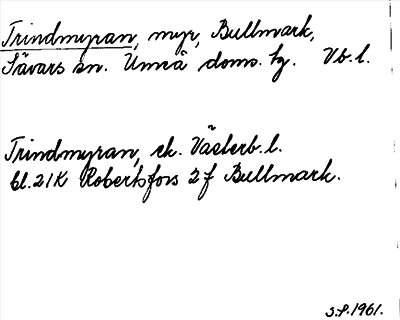 Trindmyran, myr, Bullmark,
Sävars sn. Umeå doms. hg. Vb. l.
Trindmyran, ek. Västerb. l.
bl. 21K Robertsfors 2f Bullmark.
S.P. 1961.